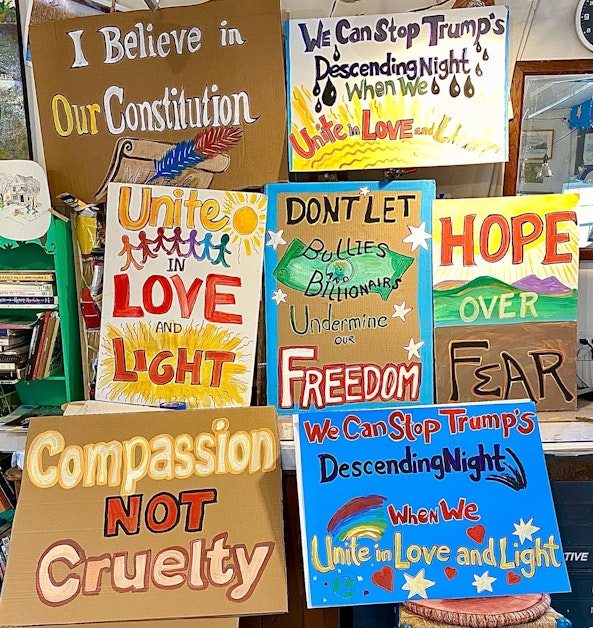 I Believe in
Our Constitution
We Can Stop Trump's
Descending Night
When We
Unite in Love and Light
Unite
in
Love
and
Light
Don't Let
Bullies
and
Billionairs
Undermine
our
Freedom
Hope
Over
Fear
Compassion
Not
Cruelty
We Can Stop Trump's
Descending Night
When We
Unite in Love and Light
TIVE